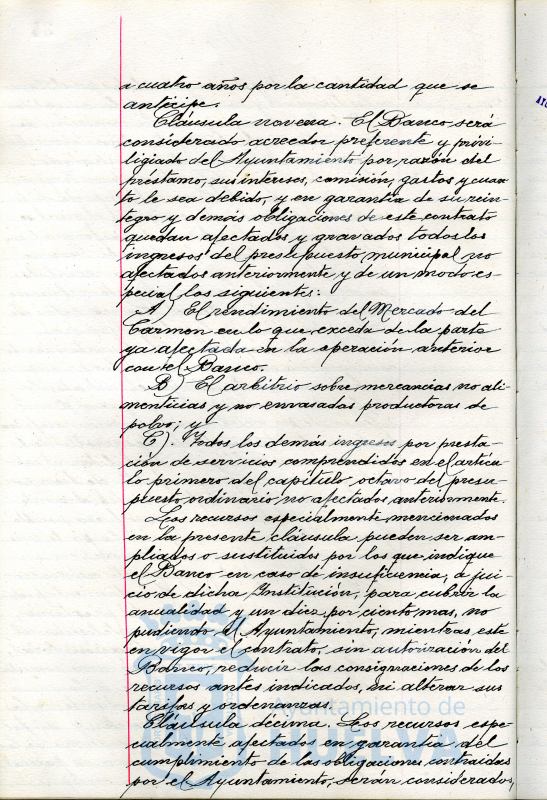 a cuatro años por la cantidad que se
anticipe.
Cláusula novena. El Banco será
considerado acreedor preferente y privi-
ligiado del Ayuntamiento por razón del
préstamo, sus intereses, comisión, gastos y cuan
to le sea debido, y en garantía de su rein-
tegro y demás obligaciones de este contrato
quedan afectados y gravados todos los
ingresos del presupuesto municipal no
afectados anteriormente y de un modo es-
pecial los siguientes:
A) El rendimiento del Mercado del
Carmen en lo que exceda de la parte
ya afectada en la operación anterior
con el Banco.
B) El arbitrio sobre mercancias no ali-
menticias y no envasadas productoras de
polvo; y
C). Todos los demás ingresos por presta-
ción de servicios comprendidos en el artícu
lo primero del capítulo octavo del presu-
puesto ordinario no afectados anteriormente.
Los recursos especialmente mencionados
en la presente cláusula pueden ser am-
pliados o sustituidos por los que indique
el Banco en caso de insuficencia, a jui-
cio de dicha Institución, para cubrir la
anualidad y un diez por ciento mas, no
pudiendo el Ayuntamiento, mientras esté
en vigor el contrato, sin autorización del
Banco, reducir las consignaciones de los
recursos antes indicados, ni alterar sus
tarifas y ordenanzas.
Cláusula décima. Los recursos espe-
cialmente afectados en garantía del
cumplimiento de las obligaciones contraidas
por el Ayuntamiento, serán considerados,
Ayuntamiento de
HUELVA